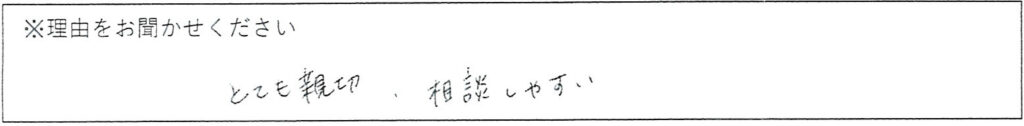 ※理由をお聞かせください
とても親切、相談しやすい